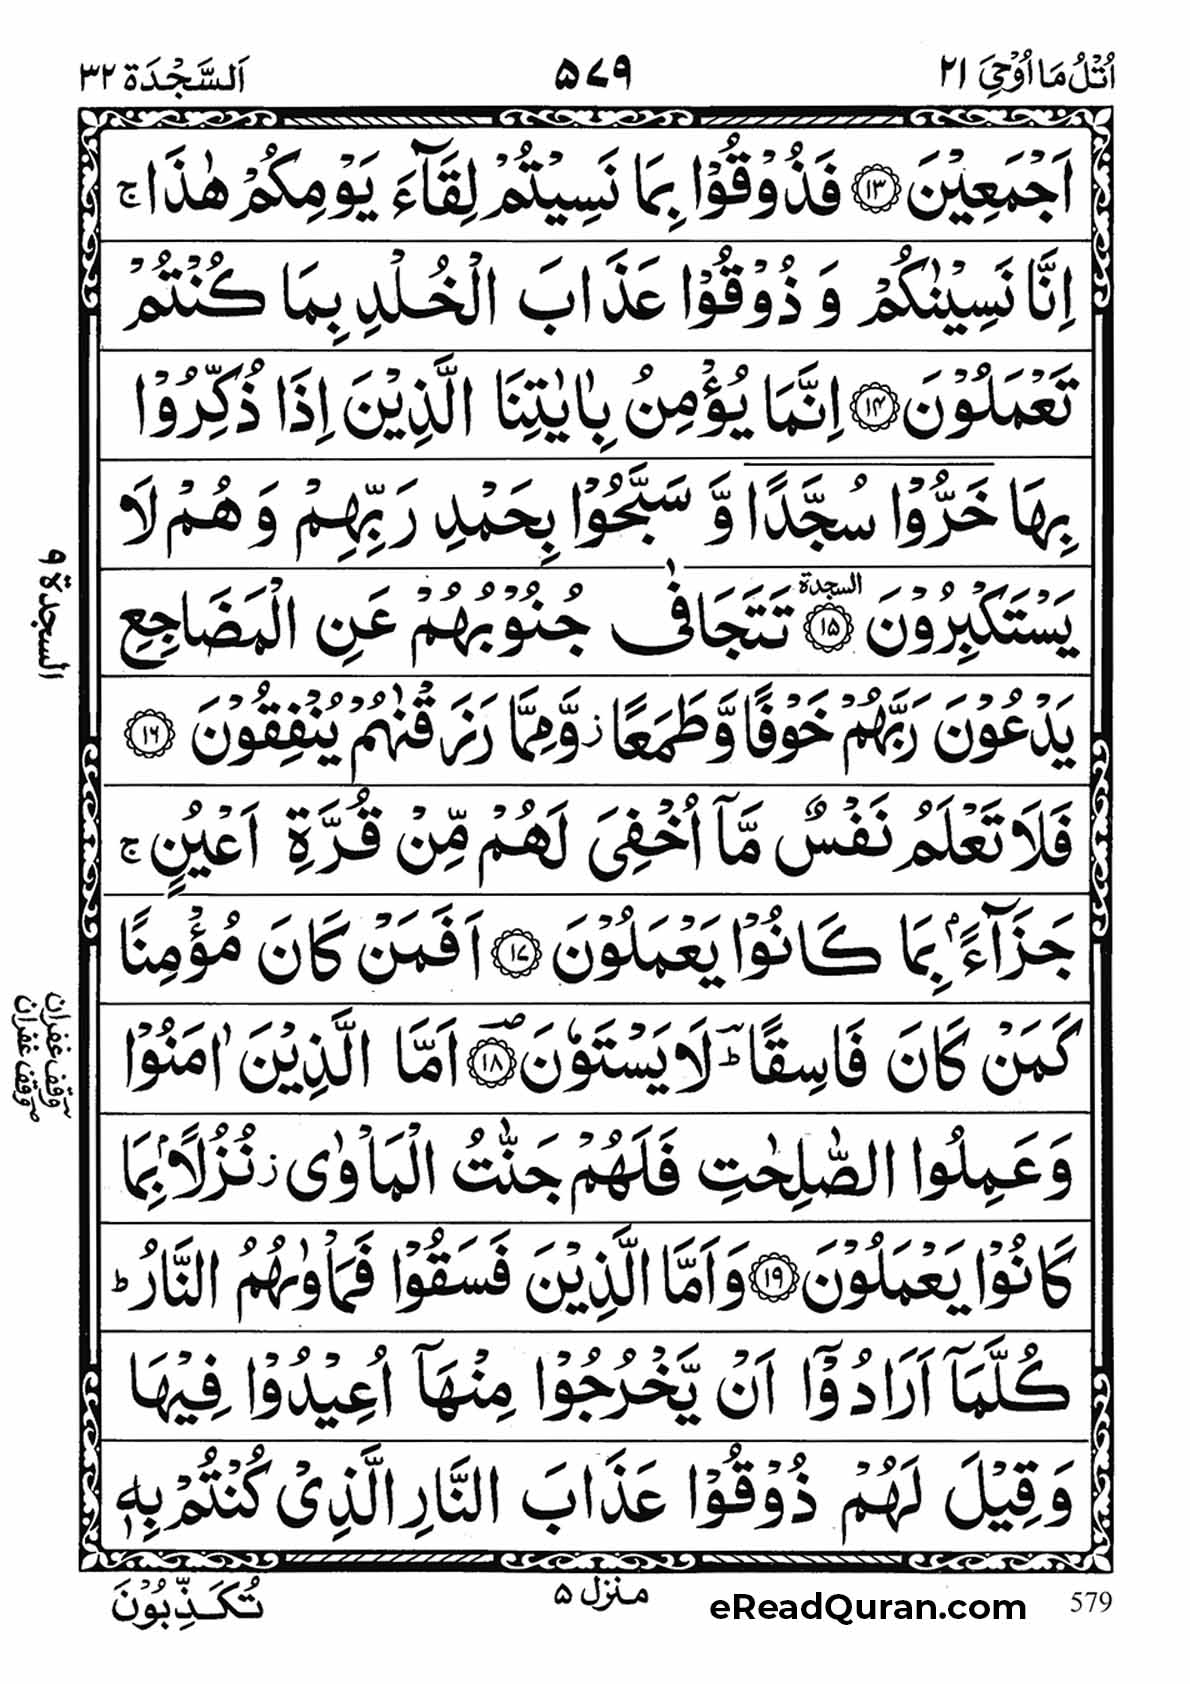 اُتْلُ مَا اُوْحِیَ ٢١
٥٧٩
اَلسَّجْدَة ٣٢
اَجْمَعِیْنَ ۝١٣ فَذُوْقُوْا بِمَا نَسِیْتُمْ لِقَآءَ یَوْمِكُمْ هٰذَا ۚ
اِنَّا نَسِیْنٰكُمْ وَ ذُوْقُوْا عَذَابَ الْخُلْدِ بِمَا كُنْتُمْ
تَعْمَلُوْنَ ۝١٤ اِنَّمَا یُؤْمِنُ بِاٰیٰتِنَا الَّذِیْنَ اِذَا ذُكِّرُوْا
بِهَا خَرُّوْا سُجَّدًا وَّ سَبَّحُوْا بِحَمْدِ رَبِّهِمْ وَ هُمْ لَا
یَسْتَكْبِرُوْنَ السجدة ۝١٥ تَتَجَافٰی جُنُوْبُهُمْ عَنِ الْمَضَاجِعِ
یَدْعُوْنَ رَبَّهُمْ خَوْفًا وَّ طَمَعًا ز وَّ مِمَّا رَزَقْنٰهُمْ یُنْفِقُوْنَ ۝١٦
فَلَا تَعْلَمُ نَفْسٌ مَّاۤ اُخْفِیَ لَهُمْ مِّنْ قُرَّةِ اَعْیُنٍ ۚ
جَزَآءًۢ بِمَا كَانُوْا یَعْمَلُوْنَ ۝١٧ اَفَمَنْ كَانَ مُؤْمِنًا
كَمَنْ كَانَ فَاسِقًا ؕ لَا یَسْتَوٗنَ ۝١٨ اَمَّا الَّذِیْنَ اٰمَنُوْا
وَ عَمِلُوا الصّٰلِحٰتِ فَلَهُمْ جَنّٰتُ الْمَاْوٰی ز نُزُلًۢا بِمَا
كَانُوْا یَعْمَلُوْنَ ۝١٩ وَ اَمَّا الَّذِیْنَ فَسَقُوْا فَمَاْوٰىهُمُ النَّارُ ؕ
كُلَّمَاۤ اَرَادُوْۤا اَنْ یَّخْرُجُوْا مِنْهَاۤ اُعِیْدُوْا فِیْهَا
وَ قِیْلَ لَهُمْ ذُوْقُوْا عَذَابَ النَّارِ الَّذِیْ كُنْتُمْ بِهٖ
السجدة ٩
وقف غفران
وقف غفران
تُكَذِّبُوْنَ
منزل ٥
eReadQuran.com
579